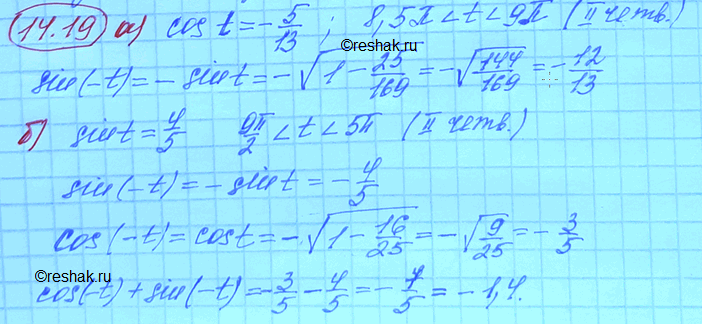 14.19 а) cos t = -5/13 ; 8,5π < t < 9π (II четв.)
©reshak.ru
sin(-t) = -sin t = -√(1 - 25/169) = -√(144/169) = -12/13
б) sin t = 4/5 9π/2 < t < 5π (II четв.)
sin(-t) = -sin t = -4/5
cos(-t) = cos t = -√(1 - 16/25) = -√(9/25) = -3/5
©reshak.ru
cos(-t) + sin(-t) = -3/5 - 4/5 = -7/5 = -1,4.
©reshak.ru